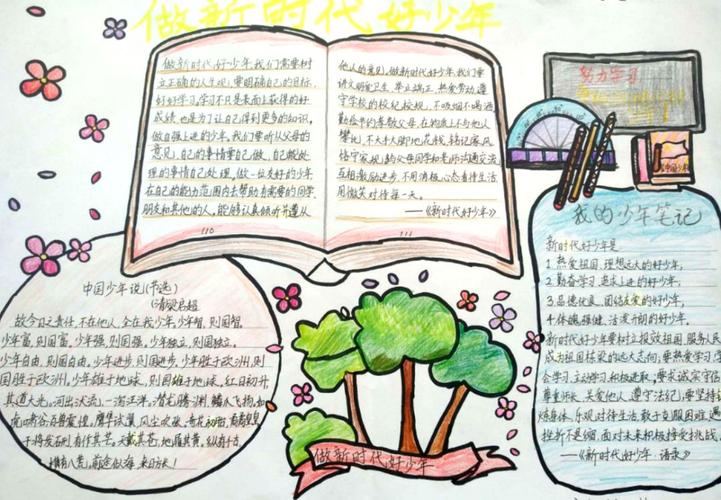 做新时代好少年
做新时代好少年,我们需要树
立正确的人生观,要明确自己的目标,
好好学习,学习不只是表面上获得的好
成绩,也是为了让自己得到更多的知识,
做自强上进的少年,我们要听从父母的
意见,自己的事情要自己做,自己能处
理的事情自己处理,做一位友好的少年
在自己的能力范围内去帮助有需要的同学、
朋友和其他的人,能够认真倾听并遵从
110
他人的意见,做新时代好少年,我们要
讲文明爱卫生,举止端正,热爱劳动,遵
守学校的校纪校规,不吸烟不喝酒
勤俭节约孝敬父母,在物质上不与他人
攀比,不大手大脚地花钱,铭记家风
恪守家规,与父母同学和老师沟通交流
互相激励进步,不用消极心态看待生活
用微笑对待每一天。
——《新时代好少年》
111
努力学习
我的少年笔记
新时代好少年是
1.热爱祖国,理想远大的好少年,
2.勤奋学习,追求上进的好少年,
3.品德优良,团结友爱的好少年,
4.体魄强健,活泼开朗的好少年。
新时代好少年要树立报效祖国,服务人民
成为祖国栋梁的远大志向,要热爱学习,学
会学习,主动学习,积极进取,要求诚实守信
尊重师长,关爱他人,遵守法纪,要坚持锻
炼身体,乐观对待生活,敢于克服困难,遇
挫折不是缩,面对未来积极接受挑战,
——《新时代好少年·语录》
中国少年说(节选)
(清)梁启超
故今日之责任,不在他人,全在我少年,少年智,则国智。
少年富,则国富,少年强,则国强,少年独立,则国独立。
少年自由,则国自由,少年进步,则国进步,少年胜于欧洲,则
国胜于欧洲,少年雄于地球,则国雄于地球,红日初升,
其道大光,河出伏流,一泻汪洋,潜龙腾渊,鳞爪飞扬,乳
虎啸谷,百兽震惶,鹰隼试翼,风尘吸张,奇花初胎,矞矞皇皇,
干将发硎,有作其芒,天戴其苍,地履其黄,纵有千古,
横有八荒,前途似海,来日方长!
做新时代好少年